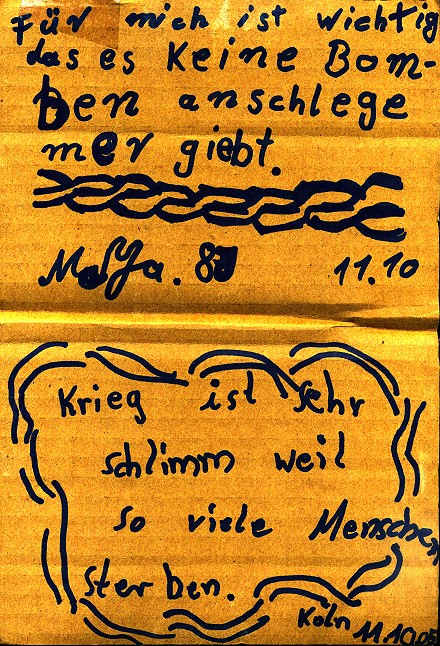 Für mich ist wichtig
das es Keine Bom-
ben anschlege
mer giebt.
11.10
Krieg ist sehr
schlimm weil
so viele Menschen
sterben.
Köln
11.10.05